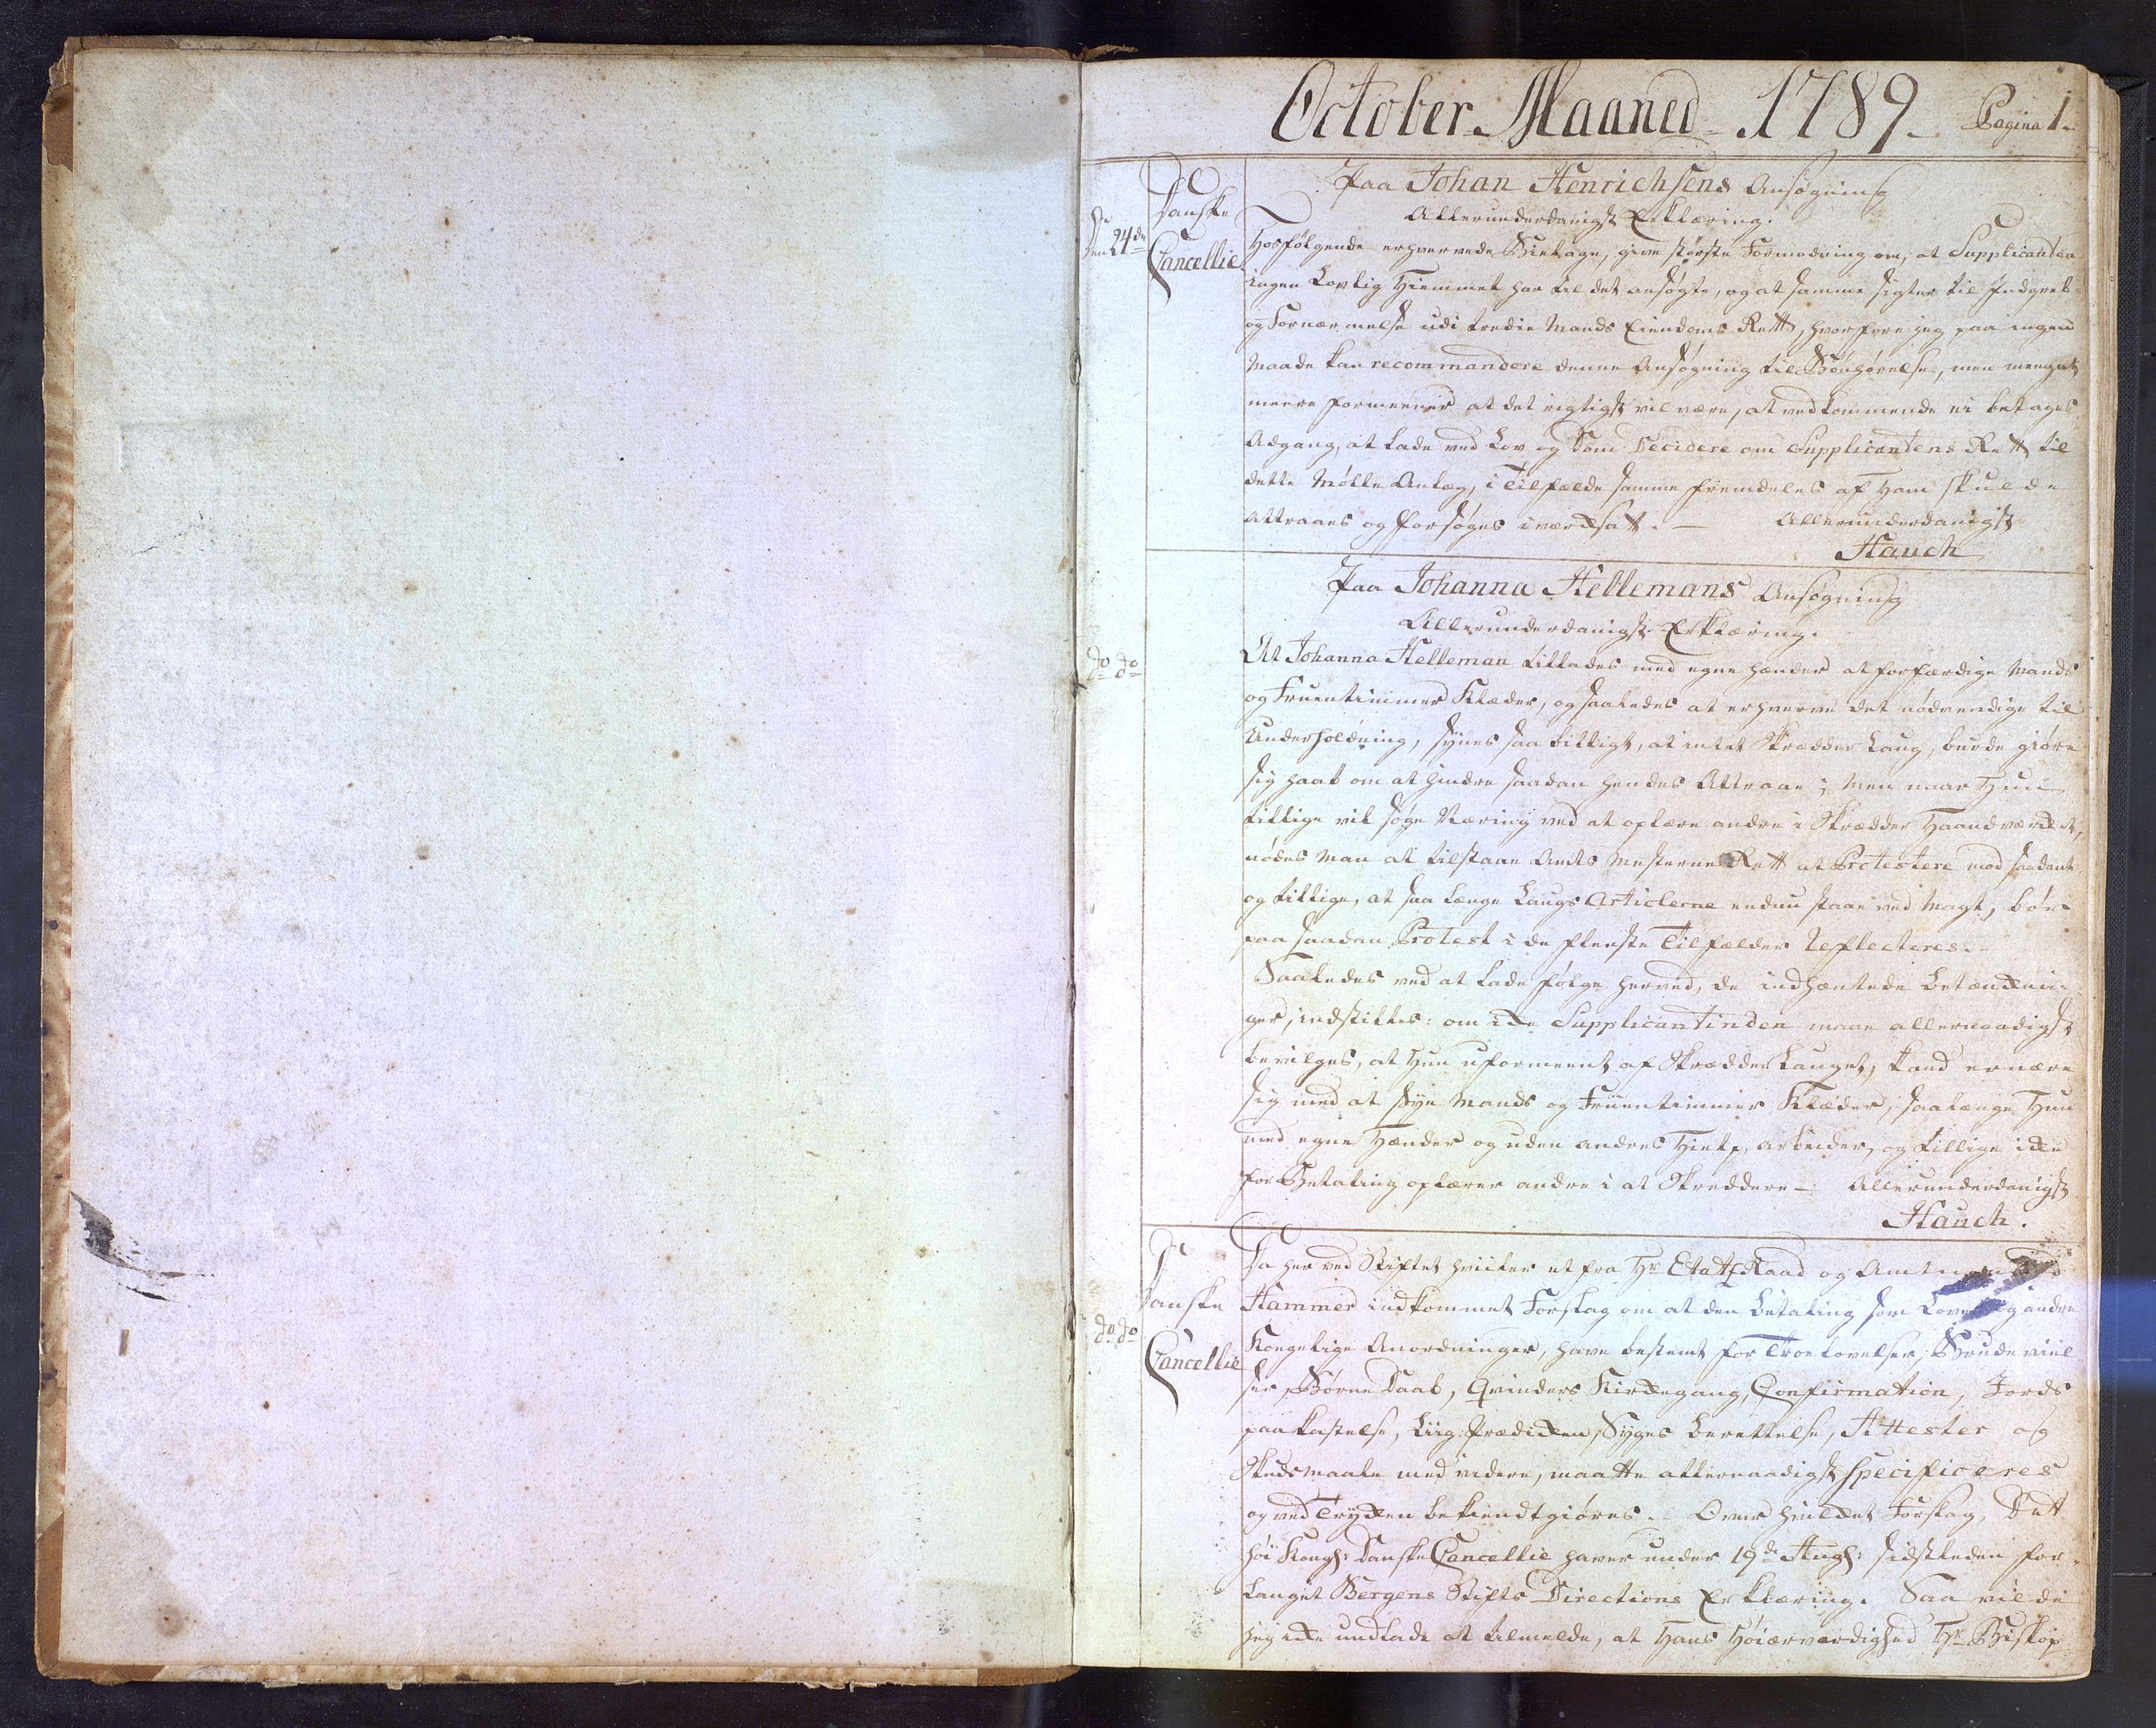 October Maaned 1789. Pagina 1.
Danske
Cancellie
Den 24de
Paa Johan Henrichsens Ansøgning
Allerunderdanigst Erklæring.
Hosfølgende erhvervede Bielage, give største Formodning om, at Supplicanten
ingen Lovlig Hiemmel har til det ansøgte, og at samme sigter til Indgreb
og Fornærmelse udi tredie Mands Eiendoms Rett, hvorfore jeg paa ingen
Maade kan recommandere denne Ansøgning til Bønhørelse, men meeget
meere formeener at det rigtigst vil være, at vedkommende ei betages
Adgang, at lade ved Lov og Dom Decidere om Supplicantens Rett til
dette Mølle Anlæg, i Tilfælde samme fremdeles af Ham skulde
attraaes og forsøges iværksatt. — Allerunderdanigst
Hauch
do do
Paa Johanna Hellemans Ansøgning
Allerunderdanigst Erklæring.
At Johanna Helleman tillades med egne hænder at forfærdige Mands
og Fruentimmer Klæder, og saaledes at erhverve det nødvendige til
Underholdning, synes saa billigt, at intet Skrædder Laug, burde giøre
sig haab om at hindre saadan hendes Attraae; men naar Hun
tillige vil søge Næring ved at oplære andre i Skrædder Haandværket,
nødes man at tilstaae Amts Mesterne Rett at Protestere mod saadant
og tillige, at saa længe Laugs Articlerne endnu staae ved Magt, bør
paa saadan Protest i de fleeste Tilfælder reflecteres.
Saaledes ved at lade følge herved, de indhæntede betænknin-
ger, indstilles: om ikke Supplicantinden maae allernaadigst
bevilges, at Hun uformeent af Skrædder Lauget, kand ernære
sig med at sye Mands og Fruentimmer Klæder, saalænge Hun
med egne Hænder og uden andres Hielp, arbeider, og tillige ikke
for Betaling oplærer andre i at Skreddere — Allerunderdanigst
Hauch.
Danske
Cancellie
do do
Da her ved Stiftet hviiler et fra Hr EtatsRaad og Amtmand
Hammer indkommet Forslag om at den betaling som Loven og andre
Kongelige Anordninger, have bestemt for Troelovelser, Brudeviel
ser, Børne Daab, Qvinders Kirkegang, Confirmation, Jords
paakastelse, Liig Prædiken, Syges berettelse, Attester og
Skudsmaale med videre, maatte allernaadigst specificeres
og ved Trykken bekiendtgiøres. - Over hvilket Forslag, Det
høi Kongl: Danske Cancellie haver under 19de Augs: sidstleden for-
langet Bergens Stifts Directions Erklæring. Saa vilde
jeg ikke undlade at tilmelde, at Hans Høiærværdighed Hr Biskop